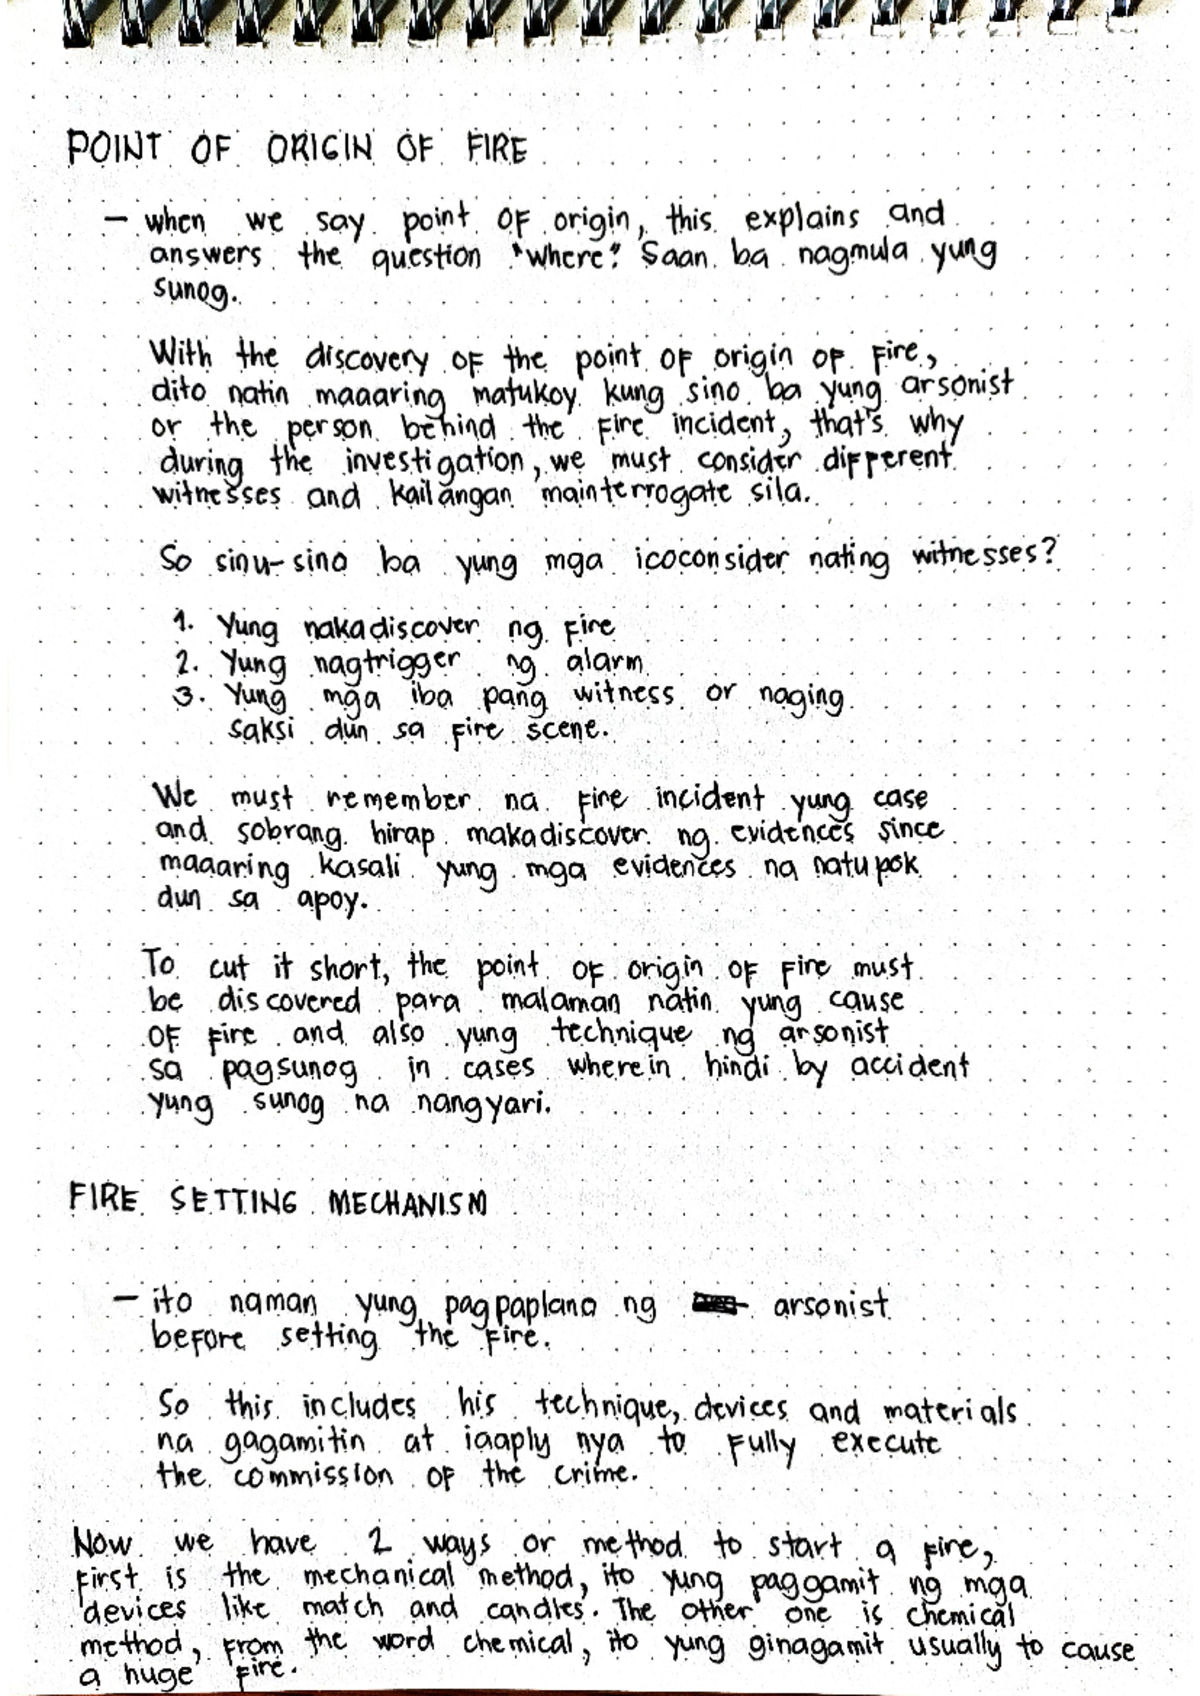 POINT OF ORIGIN OF FIRE
- when we say point of origin, this explains and
answers the question "where? Saan ba nagmula yung
sunog.
With the discovery of the point of origin of fire,
dito natin maaaring matukoy kung sino ba yung arsonist
or the person behind the fire incident, that's why
during the investigation, we must consider different
witnesses and kailangan mainterrogate sila.
So sinu-sino ba yung mga icoconsider nating witnesses?
1. Yung nakadiscover ng fire
2. Yung nagtrigger ng alarm
3. Yung mga iba pang witness or naging
saksi dun sa fire scene.
We must remember na fire incident yung case
and sobrang hirap makadiscover ng evidences since
maaaring kasali yung mga evidences na natupok
dun sa apoy.
To cut it short, the point of origin of fire must
be discovered para malaman natin yung cause
of fire and also yung technique ng arsonist
sa pagsunog in cases wherein hindi by accident
yung sunog na nangyari.
FIRE SETTING MECHANISM
- ito naman yung pagpaplano ng arsonist
before setting the fire.
So this includes his technique, devices and materials
na gagamitin at iaaply nya to fully execute
the commission of the crime.
Now we have 2 ways or method to start a fire,
first is the mechanical method, ito yung paggamit ng mga
devices like match and candles. The other one is chemical
method, from the word chemical, ito yung ginagamit usually to cause
a huge fire.